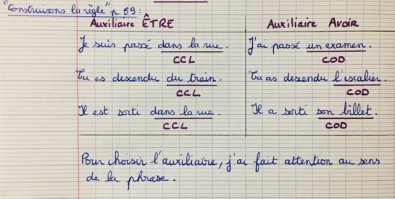 "Construisons la règle" p. 89 :
Auxiliaire ÊTRE
Auxiliaire Avoir
Je suis passé dans la rue.
J'ai passé un examen.
CCL
COD
Tu es descendu du train.
Tu as descendu l'escalier.
CCL
COD
Il est sorti dans la rue.
Il a sorti son billet.
CCL
COD
Pour choisir l'auxiliaire, j'ai fait attention au sens
de la phrase.